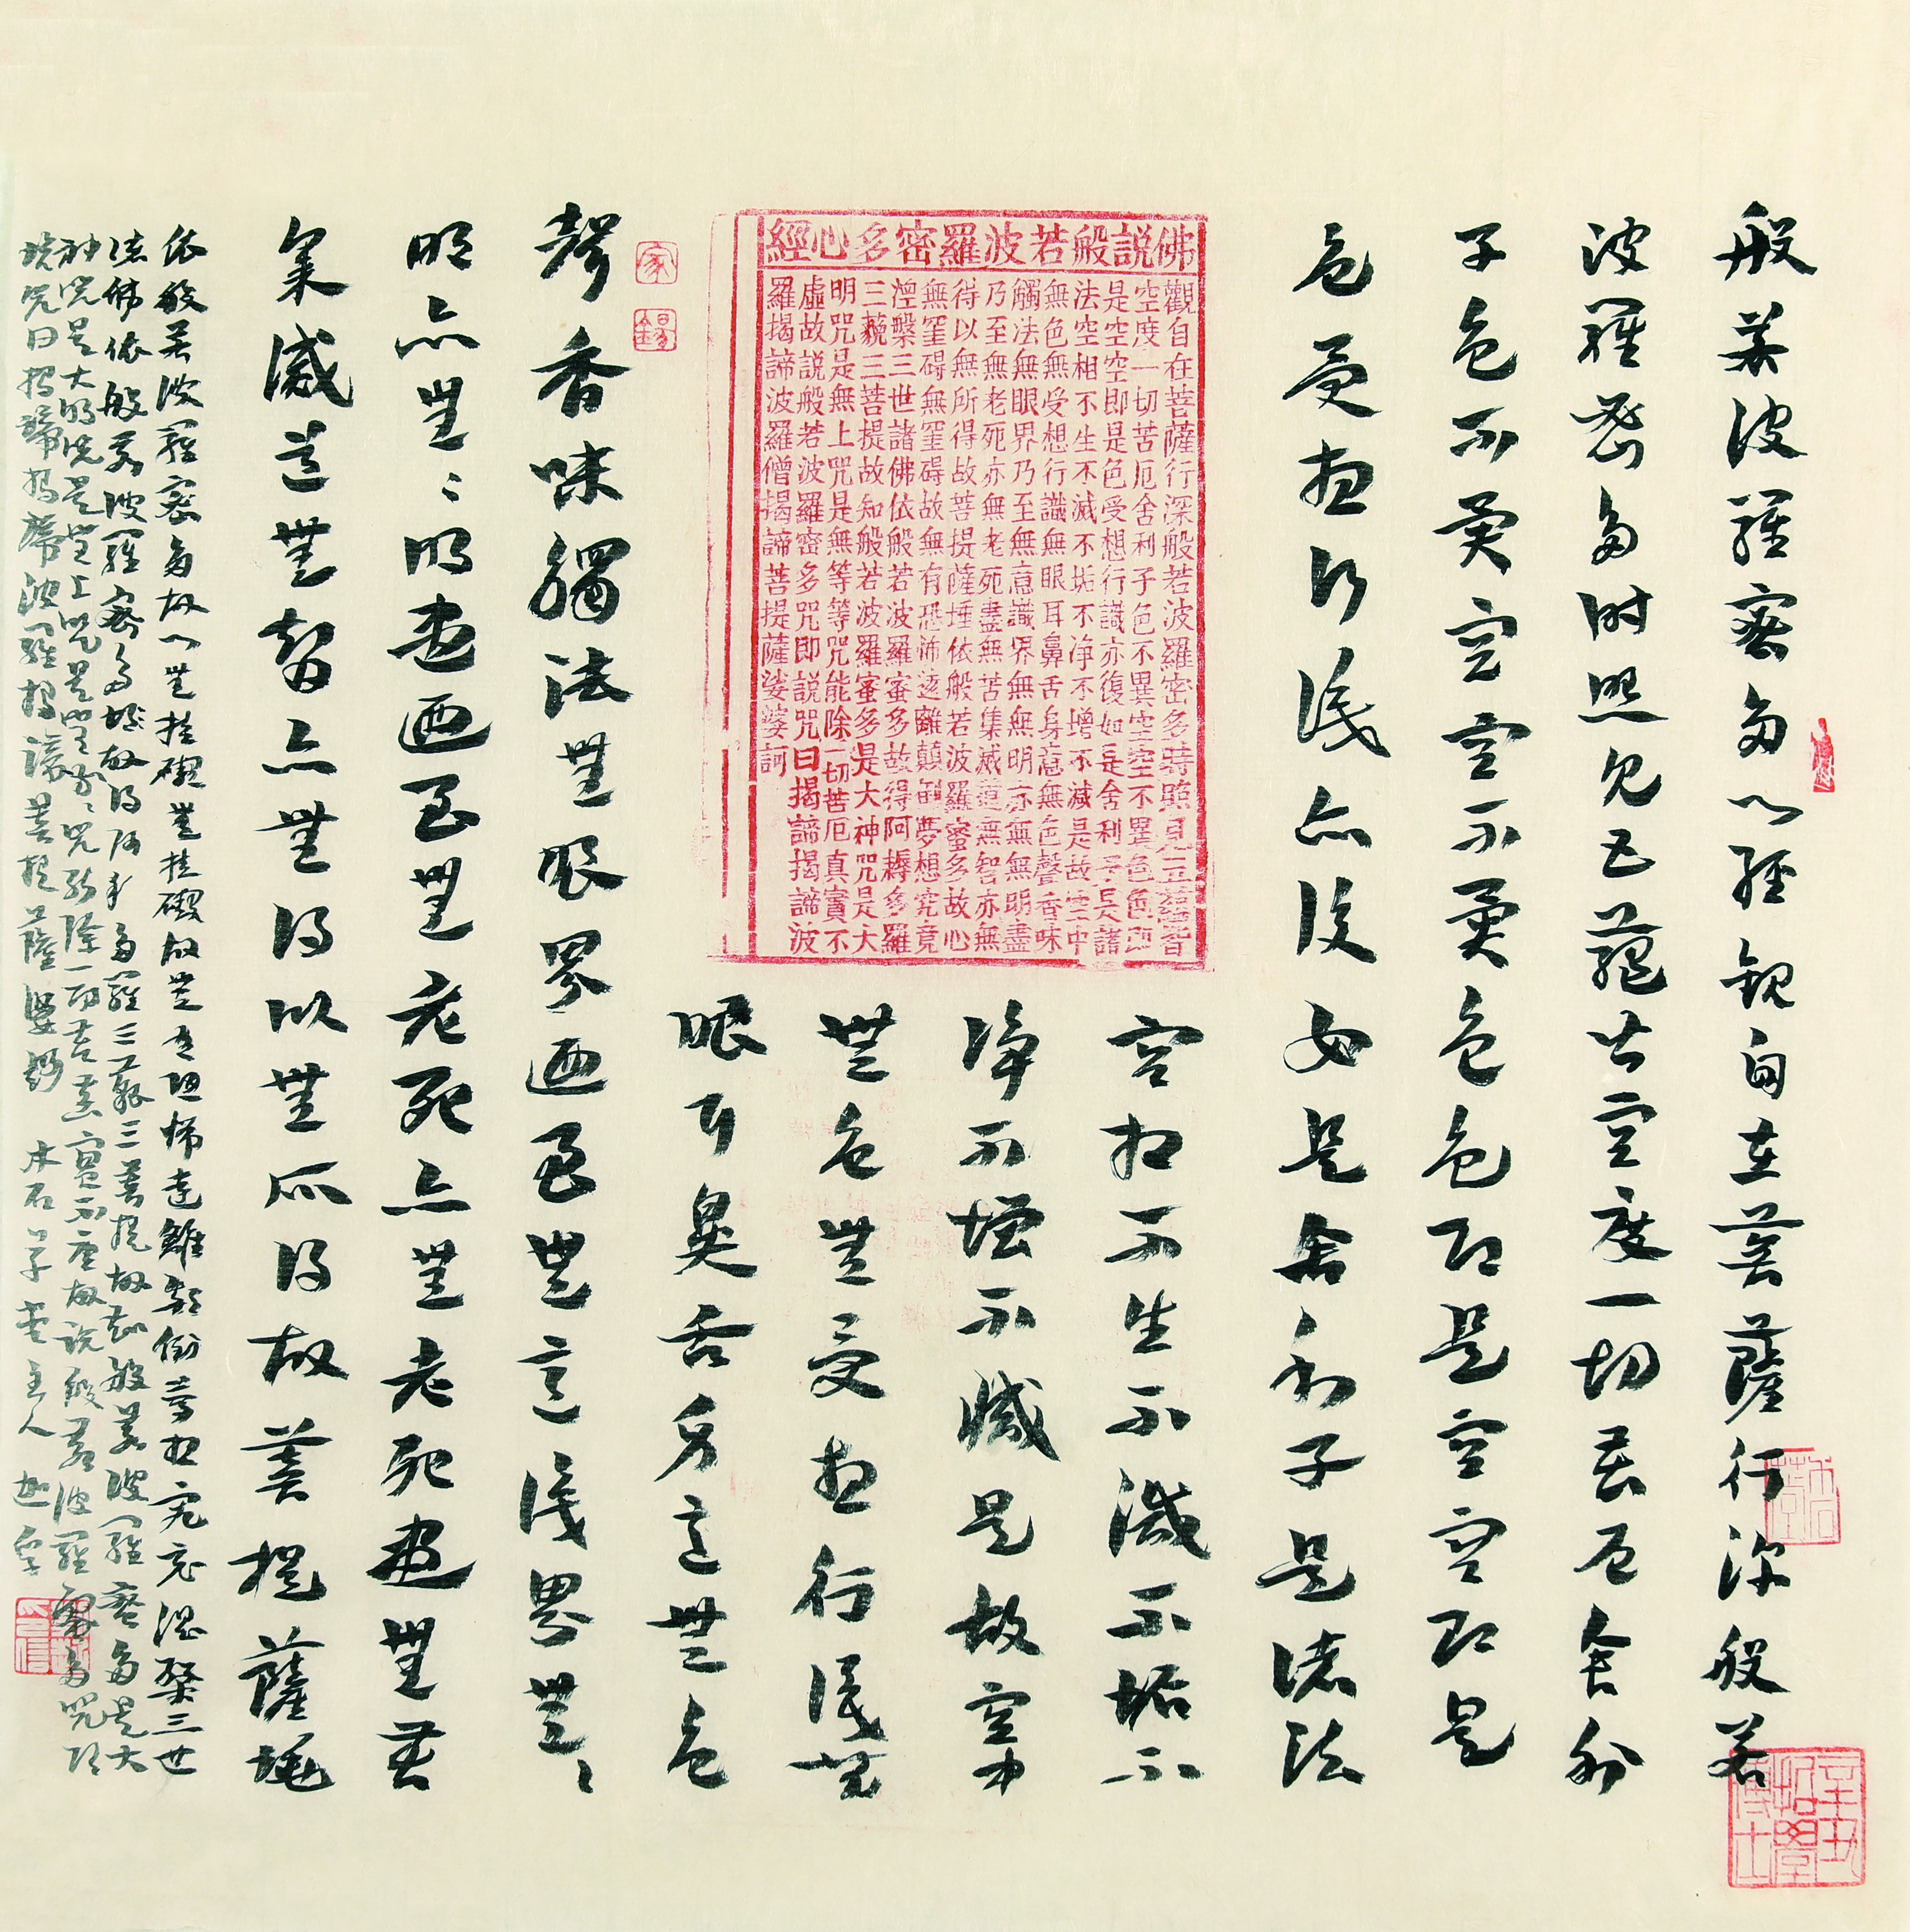 般若波羅蜜多心經觀自在菩薩行深般若
波羅蜜多时照見五蘊皆空度一切苦厄舍利
子色不異空空不異色色即是空空即是
色受想行識亦復如是舍利子是諸法
空相不生不滅不垢不
淨不增不減是故空中
無色無受想行識無
眼耳鼻舌身意無色
佛説般若波羅密多心經
觀自在菩薩行深般若波羅密多時照見五蘊皆
空度一切苦厄舍利子色不異空空不異色色即
是空空即是色受想行識亦復如是舍利子是諸
法空相不生不滅不垢不净不增不減是故空中
無色無受想行識無眼耳鼻舌身意無色聲香味
觸法無眼界乃至無意識界無無明亦無無明盡
乃至無老死亦無老死盡無苦集滅道無智亦無
得以無所得故菩提薩埵依般若波羅蜜多故心
無罣碍無罣碍故無有恐怖遠離顛倒夢想究竟
涅槃三世諸佛依般若波羅蜜多故得阿耨多羅
三藐三菩提故知般若波羅蜜多是大神咒是大
明咒是無上咒是無等等咒能除一切苦厄真實不
虛故説般若波羅密多咒即説咒曰揭諦揭諦波
羅揭諦波羅僧揭諦菩提薩娑婆訶
家
錫
聲香味觸法無眼界迺至無意識界無〻
明亦無〻明盡迺至無老死亦無老死盡無苦
集滅道無智亦無得以無所得故菩提薩埵
依般若波羅蜜多故心無挂礙無挂礙故無有恐怖遠離顛倒夢想究竟涅槃三世
諸佛依般若波羅蜜多故得阿耨多羅三藐三菩提故知般若波羅蜜多是大
神咒是大明咒是無上咒是無等〻咒能除一切苦真實不虛故説般若波羅蜜多咒即
説咒曰揭諦揭諦波羅揭諦菩提薩婆訶 木石草堂主人